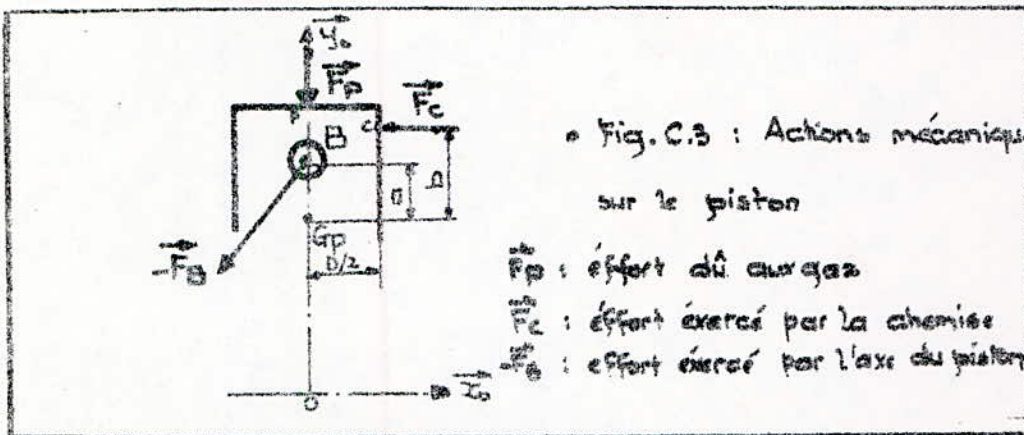 y₀
Fp
Fc
P
C
B
a
b
Gp
D/2
-F_B
• Fig. C.3 : Actions mécaniqu
sur le piston
Fp : éffort dû aux gaz
Fc : éffort éxercé par la chemise
-F_B : effort éxercé par l'axe du piston
x₀
O